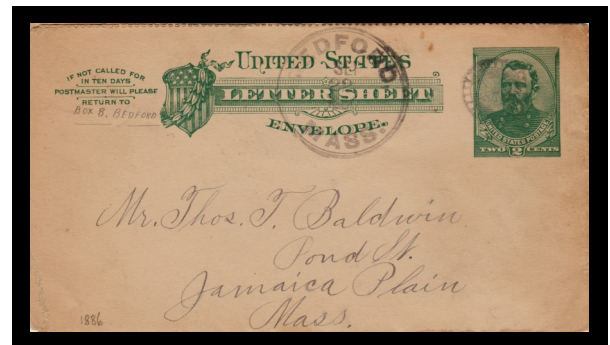 IF NOT CALLED FOR
IN TEN DAYS,
POSTMASTER WILL PLEASE
RETURN TO
BOX 8, BEDFORD
UNITED STATES
LETTER SHEET
ENVELOPE.
BEDFORD
22
MASS.
UNITED STATES POSTAGE
TWO 2 CENTS
Mr. Thos. T. Baldwin
Pond St.
Jamaica Plain
Mass.
1886